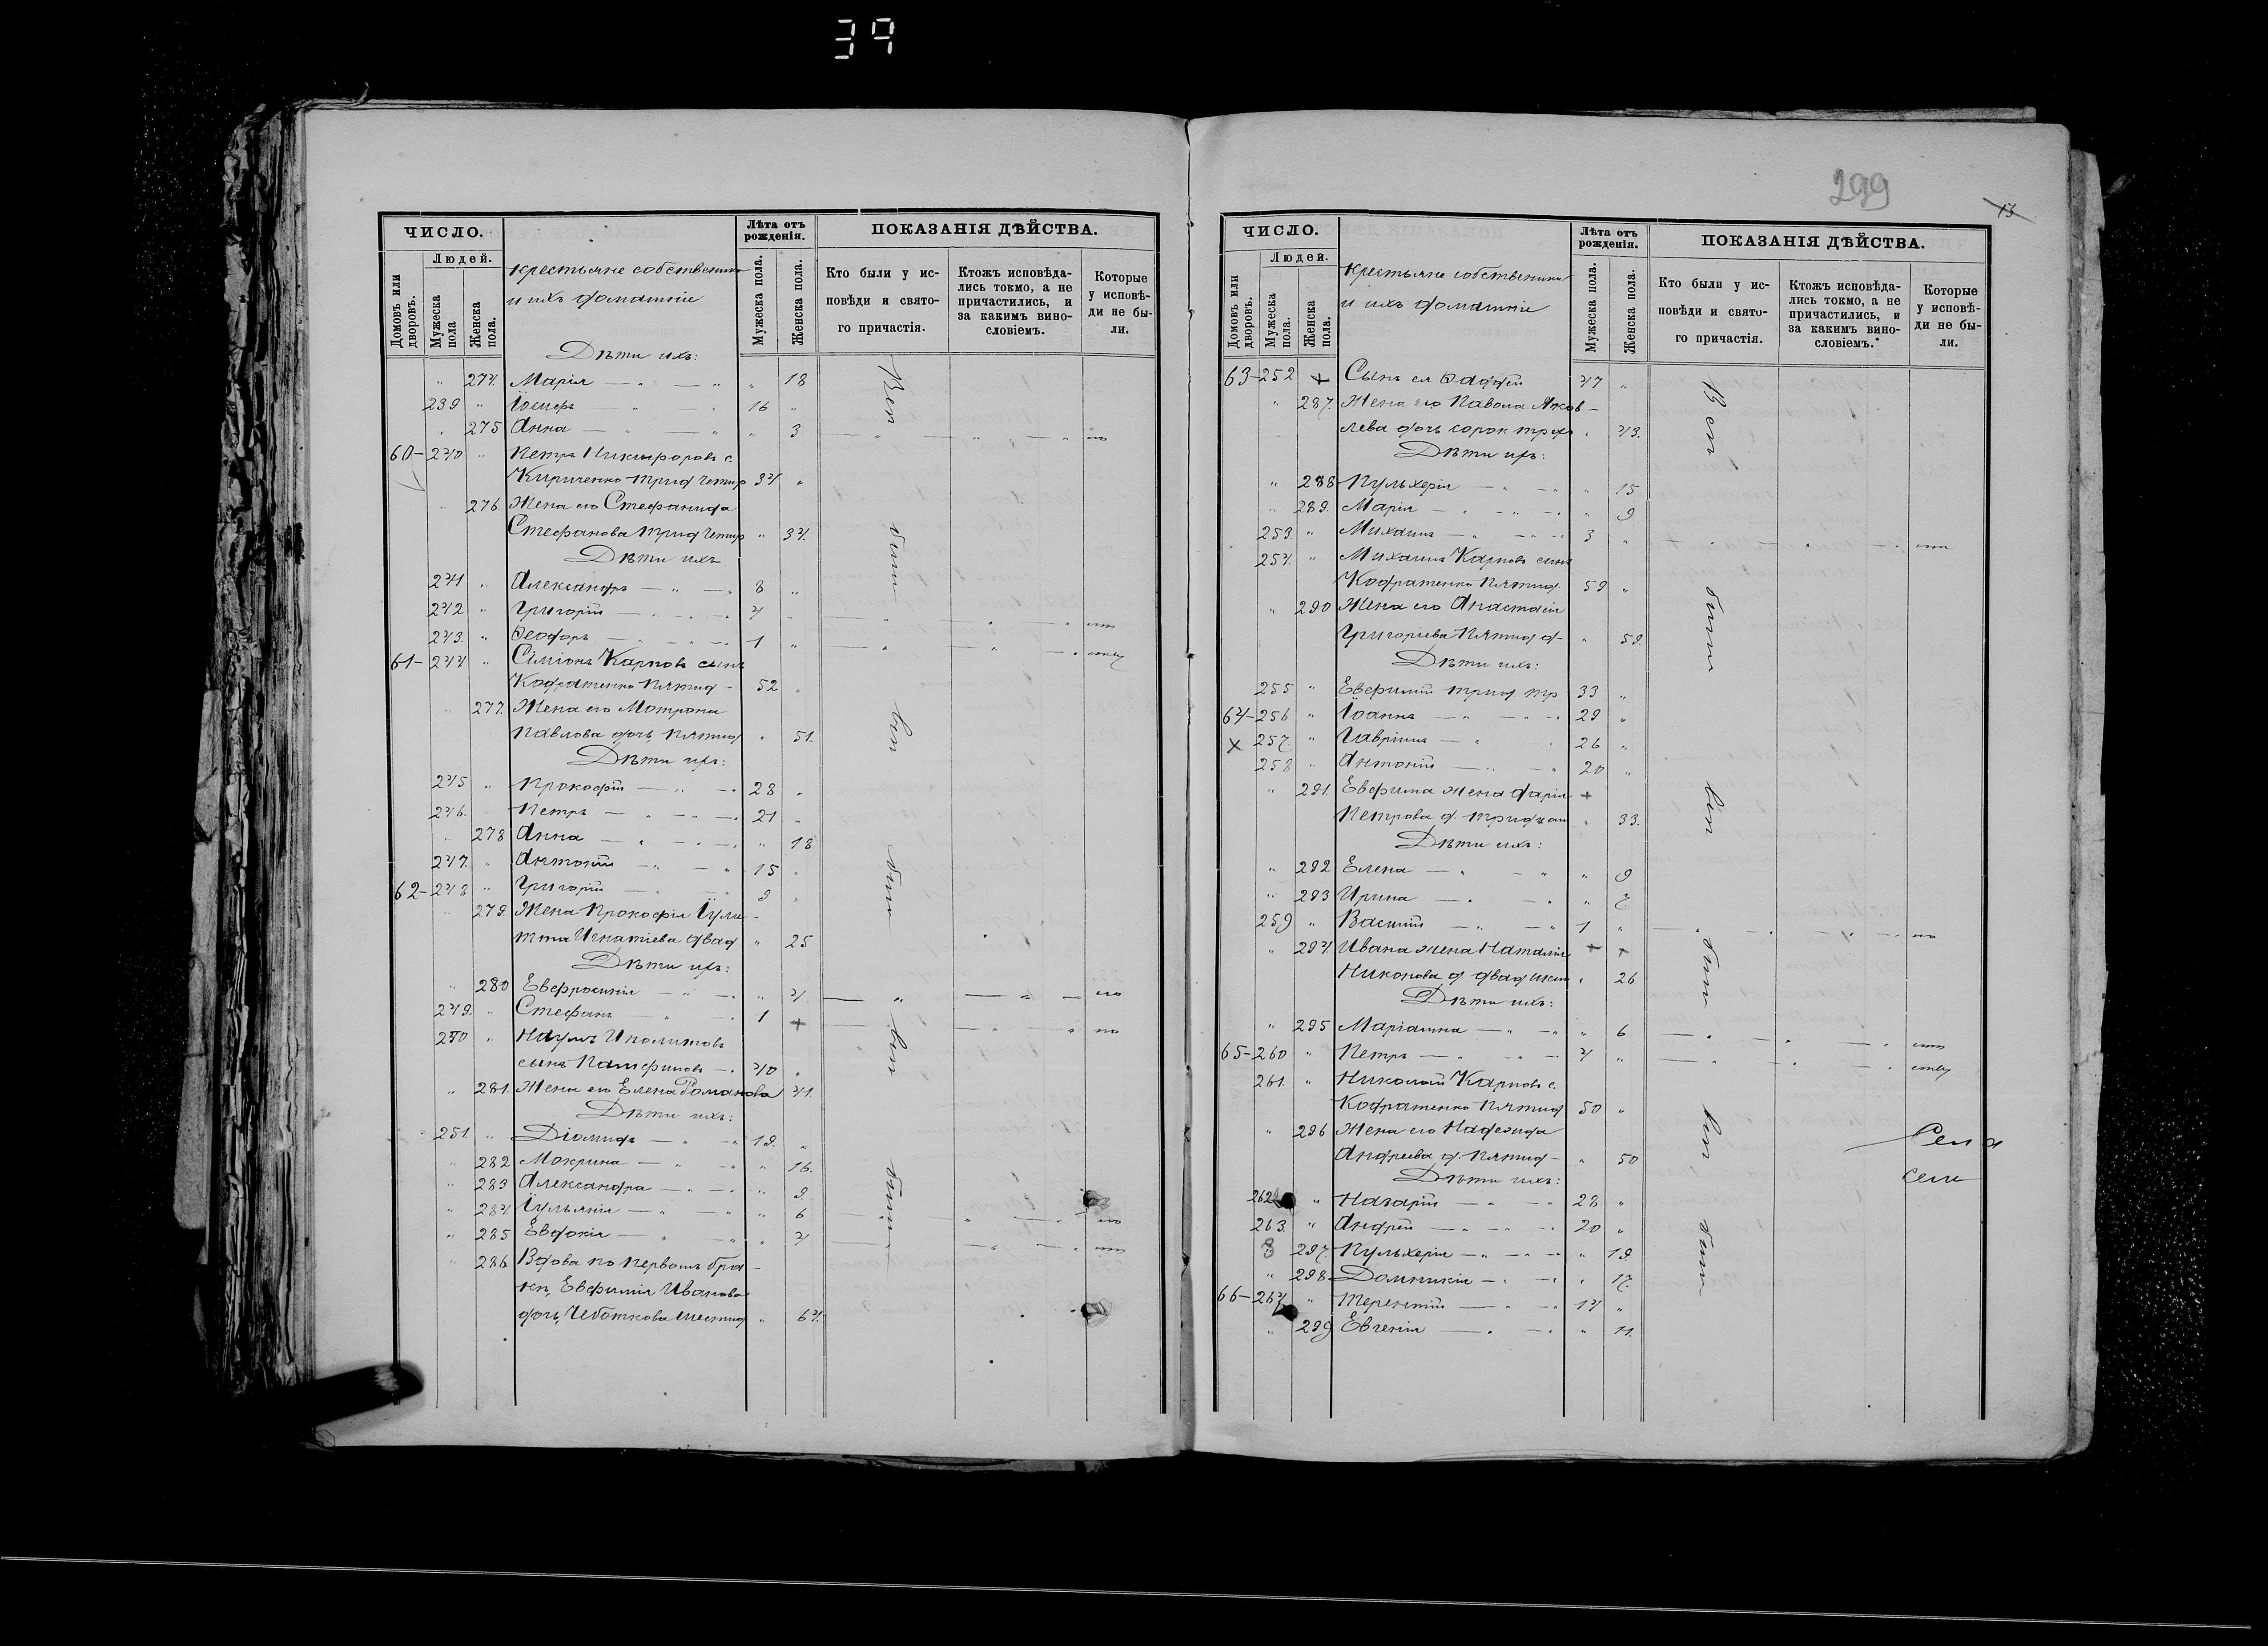 39
ЧИСЛО.
Людей.
Домовъ или дворовъ.
Мужеска пола
Женска пола.
крестьяне собственники
и ихъ домашніе
Лѣта отъ рожденія.
Мужеска пола.
Женска пола.
ПОКАЗАНІЯ ДѢЙСТВА.
Кто были у ис-
повѣди и свято-
го причастія.
Ктожъ исповѣда-
лись токмо, а не
причастились, и
за какимъ вино-
словіемъ.
Которые
у исповѣ-
ди не бы-
ли.
Дѣти ихъ:
" 274. Марія — " — " " 18
239 " Іосифъ " " 16 "
" 275 Анна — " — " " 3
60- 240 " Петръ Никифоровъ с.
Кириченко трид четыр 34 "
" 276 Жена его Стефанида
Стефанова трид четыр " 34.
Дѣти ихъ
241 " Александръ — " — " 8 "
242 " Григорій — " — " 4 "
243. " Ѳеодоръ — " — " 1 "
61- 244 " Сѵміонъ Карповъ сынъ
Кодратенко пятид - 52 "
" 277. Жена его Мотрона
Павлова дочь, пятид " 51.
Дѣти ихъ:
245 " Прокофій — " — " 28 "
246. " Петръ — " — " 21 "
" 278 Анна — " — " " 18
247. " Антоній — " — " 15 "
62- 248 " Григорій — " — 9 "
" 279. Жена Прокофія Іули-
тта Игнатіева двад " 25
Дѣти ихъ:
" 280 Евфросинія — " — " " 4
249. " Стефанъ — " — " 1 +
250 " Наумъ Иполитовъ
сынъ — " 40 "
" 281. Жена его Елена Романова 41.
Дѣти ихъ:
251. " Діомидъ — " — " 19. "
" 282 Мокрина — " — " " 16.
" 283 Александра — " — " " 9.
" 284 Іульянія — " — " " 6
" 285 Евдокія — " — " " 4
" 286 Вдова по первомъ бра-
кѣ, Евфимія Иванова
дочь, Чоботкова шестид " 64.
Всѣ были всѣ были всѣ были
299
13
ЧИСЛО.
Людей.
Домовъ или дворовъ.
Мужеска пола.
Женска пола.
крестьяне собственники
и ихъ домашніе
Лѣта отъ рожденія.
Мужеска пола.
Женска пола.
ПОКАЗАНІЯ ДѢЙСТВА.
Кто были у ис-
повѣди и свято-
го причастія.
Ктожъ исповѣда-
лись токмо, а не
причастились, и
за какимъ вино-
словіемъ.
Которые
у исповѣ-
ди не бы-
ли.
63- 252 + Сынъ ея Ѳаддей 47 "
" 287. Жена его Павола Яков-
лева дочь сорок трехъ " 43.
Дѣти ихъ:
" 288 Пульхерія — " — " " 15
" 289. Марія — " — " " 9
253. " Михаилъ — " — " 3 "
254. " Михаилъ Карповъ сынъ
Кодратенко пятид. 59 "
" 290 Жена его Анастасія
Григоріева пятид д- " 59.
Дѣти ихъ:
255 " Евфимій трид тр 33 "
64- 256 " Іоаннъ — " — " 29 "
x 257. " Гавріилъ — " " 26 "
258 " Антоній — " — " 20 "
" 291. Евфима жена Дарія +
Петрова д. тридцат " 33.
Дѣти ихъ:
" 292 Елена — " — " " 9
" 293 Ирина — " — " " 7.
259 " Василій — " — " 1 "
" 294. Ивана жена Наталія + +
Никонова д. двад шест " 26
Дѣти ихъ:
" 295 Маріамна — " — " " 6
65- 260 " Петръ — " — " 4 "
261. " Николай Карповъ с.
Кодратенко пятид 50 "
" 296 Жена его Надежда
Андреева д. пятид - " 50
Дѣти ихъ:
262 " Назарій — " — " 28 "
263. " Андрей — " — " 20 "
8 297. Пульхерія — " — " " 19.
" 298 Домникія — " — " " 17.
66- 264 " Терентій — " — " 14 "
" 299 Евгенія — " — " " 11.
Всѣ были всѣ были всѣ были